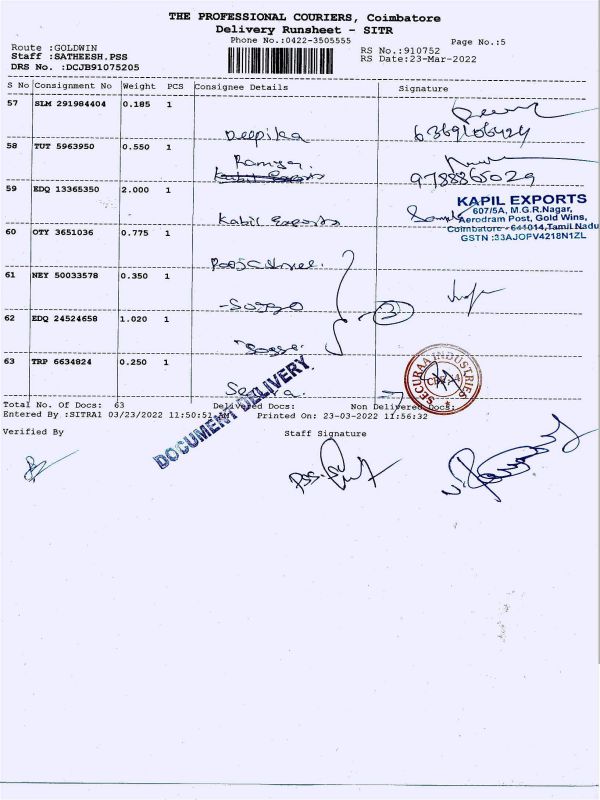 THE PROFESSIONAL COURIERS, Coimbatore
Delivery Runsheet - SITR
Phone No.:0422-3505555
Page No.:5
Route :GOLDWIN
RS No.:910752
Staff :SATHEESH.PSS
RS Date:23-Mar-2022
DRS No. :DCJB91075205
S No Consignment No Weight PCS Consignee Details Signature
57 SLM 291984404 0.185 1
Deepika
6369106424
58 TUT 5963950 0.550 1
Ramya.
9788865029
Kabil Exports
59 EDQ 13365350 2.000 1
Kabil Exports
KAPIL EXPORTS
607/5A, M.G.R.Nagar,
Aerodram Post, Gold Wins,
Coimbatore - 641014,Tamil Nadu
GSTN :33AJOPV4218N1ZL
60 OTY 3651036 0.775 1
61 NEY 50033578 0.350 1
3
62 EDQ 24524658 1.020 1
63 TRP 6634824 0.250 1
SECURAA INDUSTRIES
DOCUMENT DELIVERY
Total No. Of Docs: 63 Delivered Docs: Non Delivered Docs:
Entered By :SITRA1 03/23/2022 11:50:51 AM Printed On: 23-03-2022 11:56:32
Verified By Staff Signature
PSS.